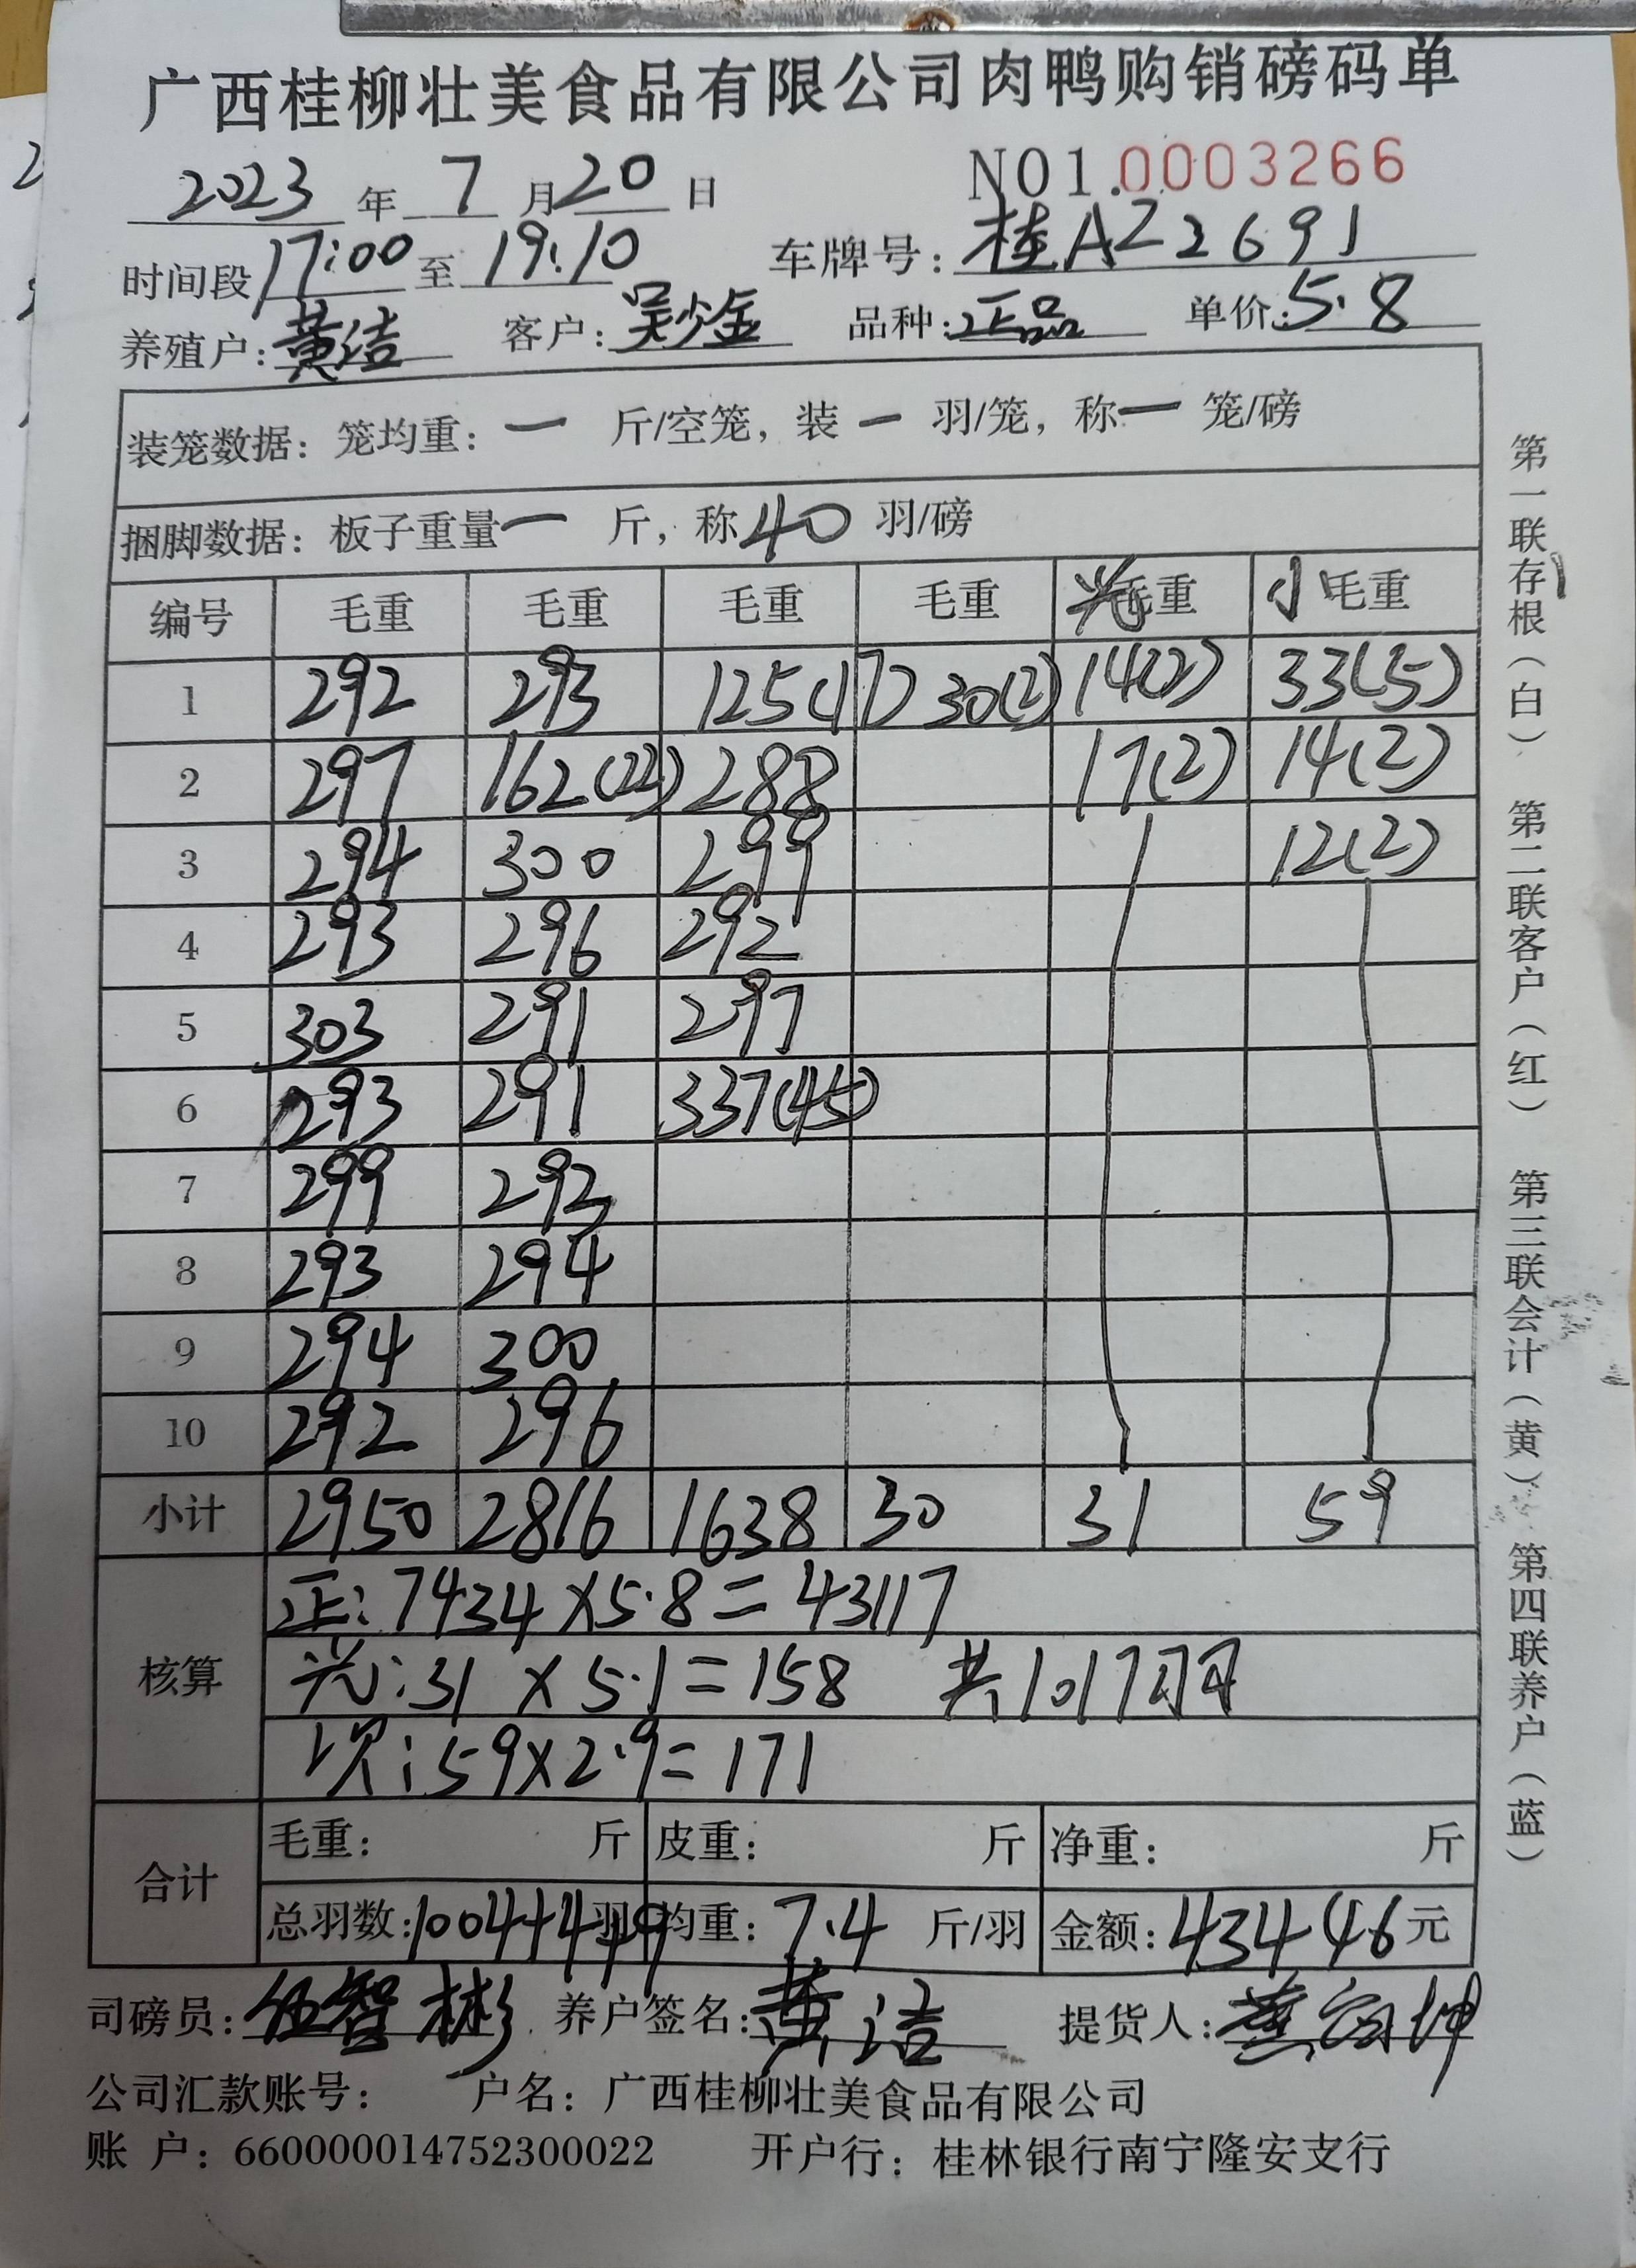 广西桂柳壮美食品有限公司肉鸭购销磅码单
2023 年 7 月 20 日 NO1.0003266
时间段 17:00 至 19:10 车牌号: 桂AZ2691
养殖户: 黄洁 客户: 品种: 正品 单价: 5.8
装笼数据: 笼均重: 一 斤/空笼, 装 一 羽/笼, 称 一 笼/磅
捆脚数据: 板子重量 一 斤, 称 40 羽/磅
编号 毛重 毛重 毛重 毛重 毛重 小 毛重
1 292 293 125(17) 30(2) 14(2) 33(5)
2 297 162(22) 288 17(2) 14(2)
3 294 300 299 12(2)
4 293 296 292
5 303 291 297
6 293 291 337(45)
7 299 292
8 293 294
9 294 300
10 292 296
小计 2950 2816 1638 30 31 59
核算
正: 7434×5.8=43117
:31×5.1=158 共1017羽
次:59×2.9=171
合计
毛重: 斤 皮重: 斤 净重: 斤
总羽数: 1004+4+9 羽 均重: 7.4 斤/羽 金额: 43446 元
司磅员: 伍智彬 养户签名: 黄洁 提货人:
公司汇款账号: 户名: 广西桂柳壮美食品有限公司
账 户: 660000014752300022 开户行: 桂林银行南宁隆安支行
第一联存根(白) 第二联客户(红) 第三联会计(黄) 第四联养户(蓝)